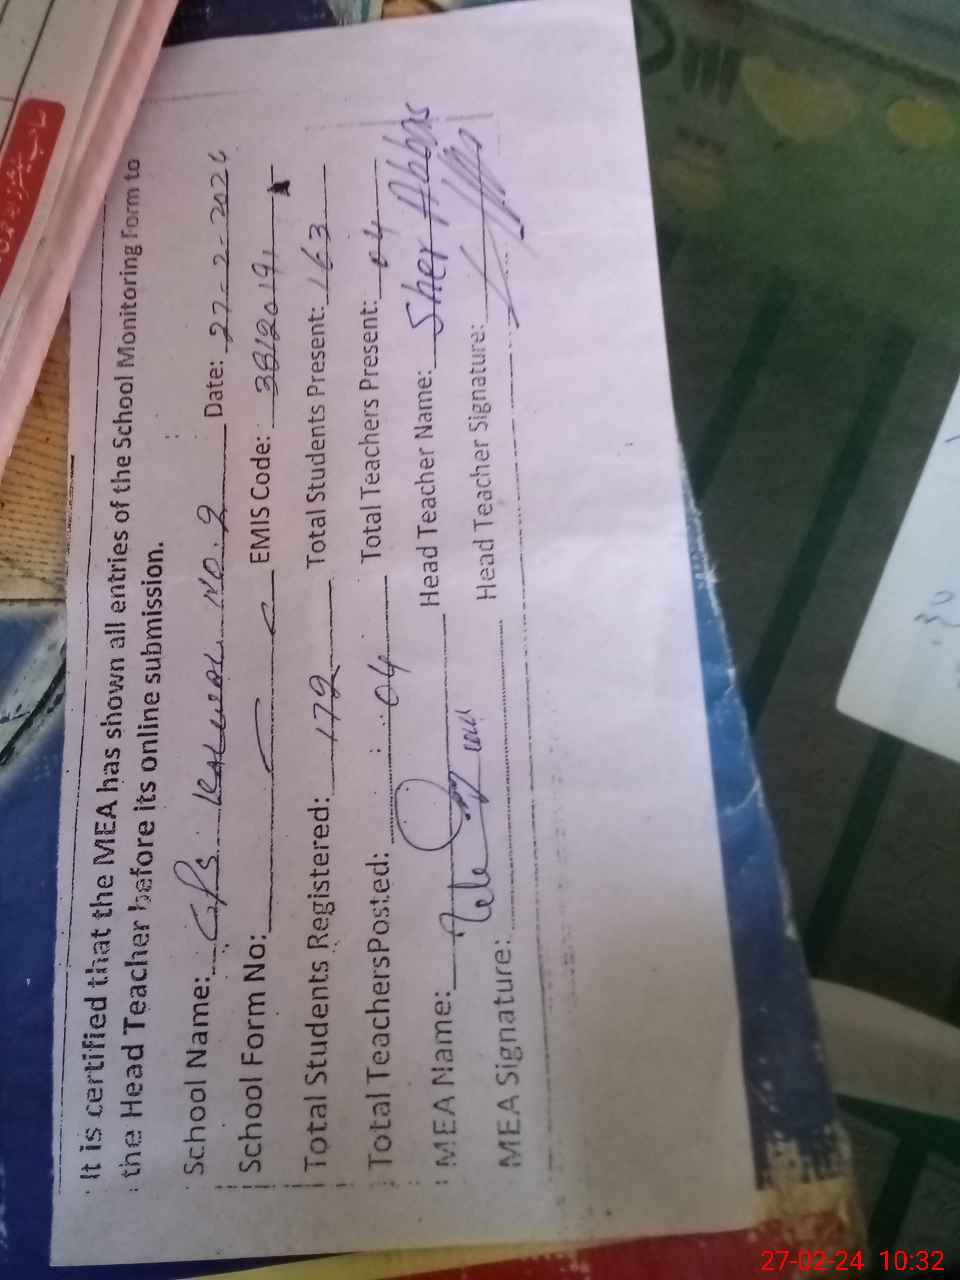 It is certified that the MEA has shown all entries of the School Monitoring Form to
the Head Teacher before its online submission.
School Name: GPS No. 2 Date: 27-2-2024
School Form No: EMIS Code:
Total Students Registered: 172 Total Students Present: 163
Total TeachersPosted: 04 Total Teachers Present: 04
MEA Name: Head Teacher Name: Sher Abbas
MEA Signature: Head Teacher Signature:
27-02-24 10:32